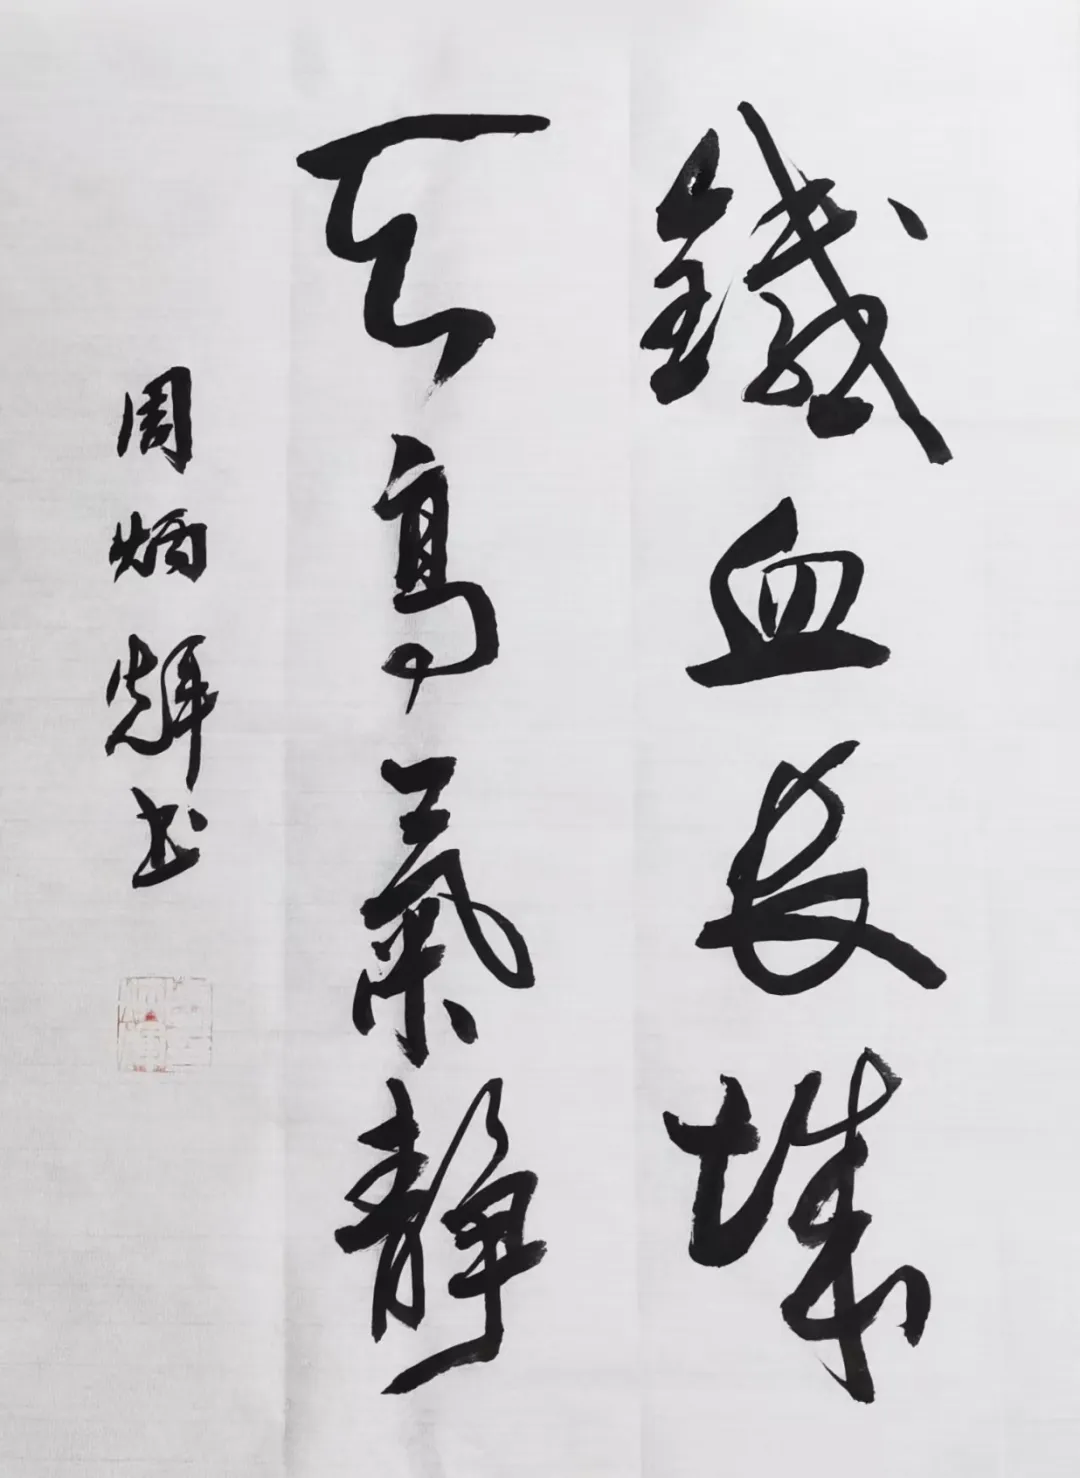 鐵血長城
天高氣靜
周炳輝书